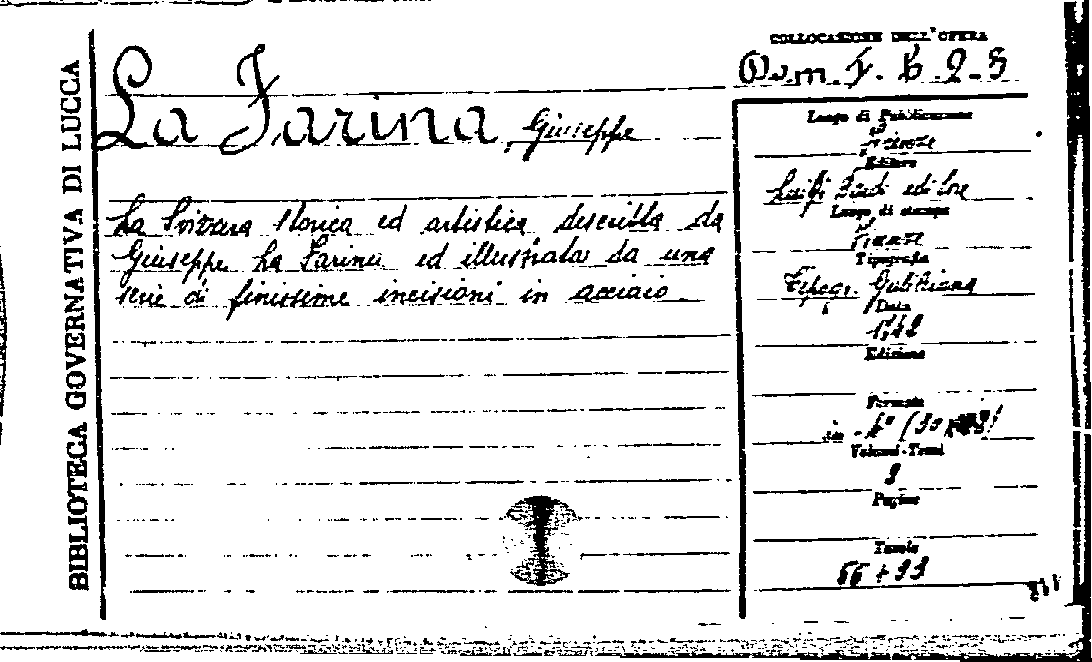 BIBLIOTECA GOVERNATIVA DI LUCCA
COLLOCAZIONE DELL'OPERA
La Farina, Giuseppe
La Svizzera storica ed artistica descritta da
Giuseppe La Farina ed illustrata da una
serie di finissime incisioni in acciaio
Luogo di Pubblicazione
Firenze
Editore
Luigi Bardi editore
Luogo di stampa
Firenze
Tipografia
Tipogr. Galileiana
Data
Edizione
Formato
in-4°
Volumi-Tomi
Pagine
Tavole